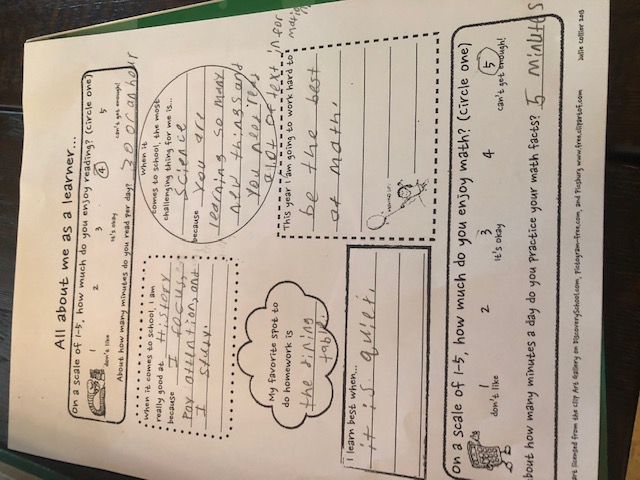 All about me as a learner...
On a scale of 1-5, how much do you enjoy reading? (circle one)
1 2 3 4 5
don't like it's okay can't get enough!
About how many minutes do you read per day? 30 or an hour
When it comes to school, I am
really good at History
because I focus,
Pay attention, and
I study.
When it
comes to school, the most
challenging thing for me is...
Science
because You are
learning so many
new things and
you need
a lot of text infor
mation
My favorite spot to
do homework is
the dining
table.
This year I am going to work hard to
be the best
at math.
I learn best when...
it is quiet.
MOVING UP!
On a scale of 1-5, how much do you enjoy math? (circle one)
1 2 3 4 5
don't like it's okay can't get enough!
about how many minutes a day do you practice your math facts? 5 minutes
art licensed from the Clip Art Gallery on DiscoverySchool.com, Pictogram-free.com, and Picsburg www.free.clipartof.com Julie Collier 2013